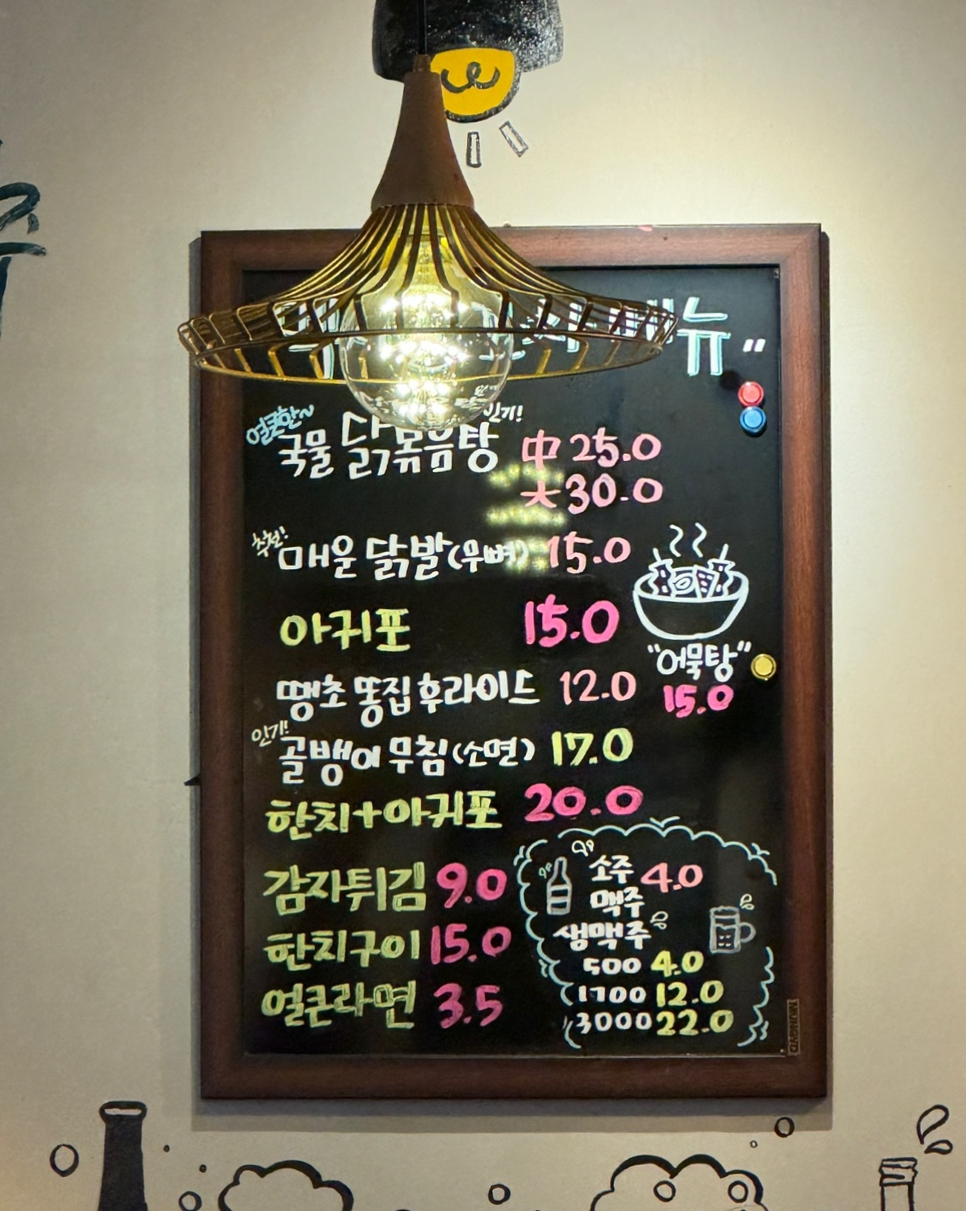 메뉴"
얼큰한~ 인기!
국물 닭볶음탕 中 25.0
大 30.0
추천! 매운 닭발(무뼈) 15.0
아귀포 15.0
"어묵탕"
15.0
땡초 똥집 후라이드 12.0
인기!
골뱅이 무침(소면) 17.0
한치+아귀포 20.0
감자튀김 9.0
한치구이 15.0
얼큰라면 3.5
소주 4.0
맥주
생맥주
500 4.0
1700 12.0
3000 22.0